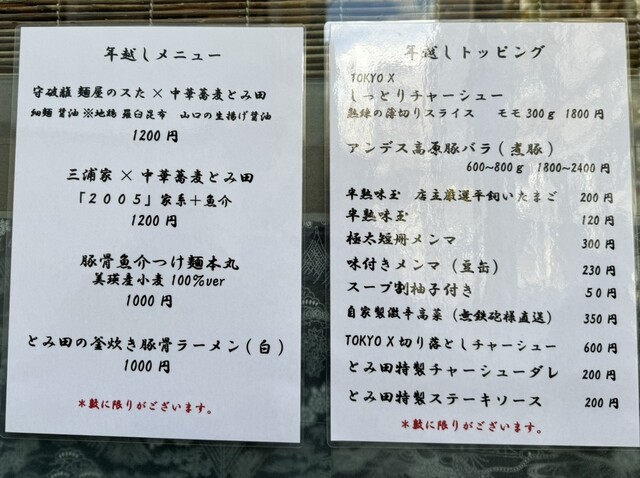 年越しメニュー
守破離 麺屋のスた × 中華蕎麦とみ田
細麺 醤油 ※地鶏 羅臼昆布 山口の生揚げ醤油
1200 円
三浦家 × 中華蕎麦とみ田
「２００５」家系＋魚介
1200 円
豚骨魚介つけ麺本丸
美瑛産小麦 100%ver
1000 円
とみ田の釜炊き豚骨ラーメン(白)
1000 円
＊数に限りがございます。
年越しトッピング
TOKYO X
しっとりチャーシュー
熟練の薄切りスライス モモ 300ｇ 1800 円
アンデス高原豚バラ(煮豚)
600～800ｇ 1800～2400 円
半熟味玉 店主厳選平飼いたまご 200 円
半熟味玉 120 円
極太短冊メンマ 300 円
味付きメンマ(豆缶) 230 円
スープ割柚子付き ５０ 円
自家製激辛高菜(無鉄砲様直送) 350 円
TOKYO X切り落としチャーシュー 600 円
とみ田特製チャーシューダレ 200 円
とみ田特製ステーキソース 200 円
＊数に限りがございます。